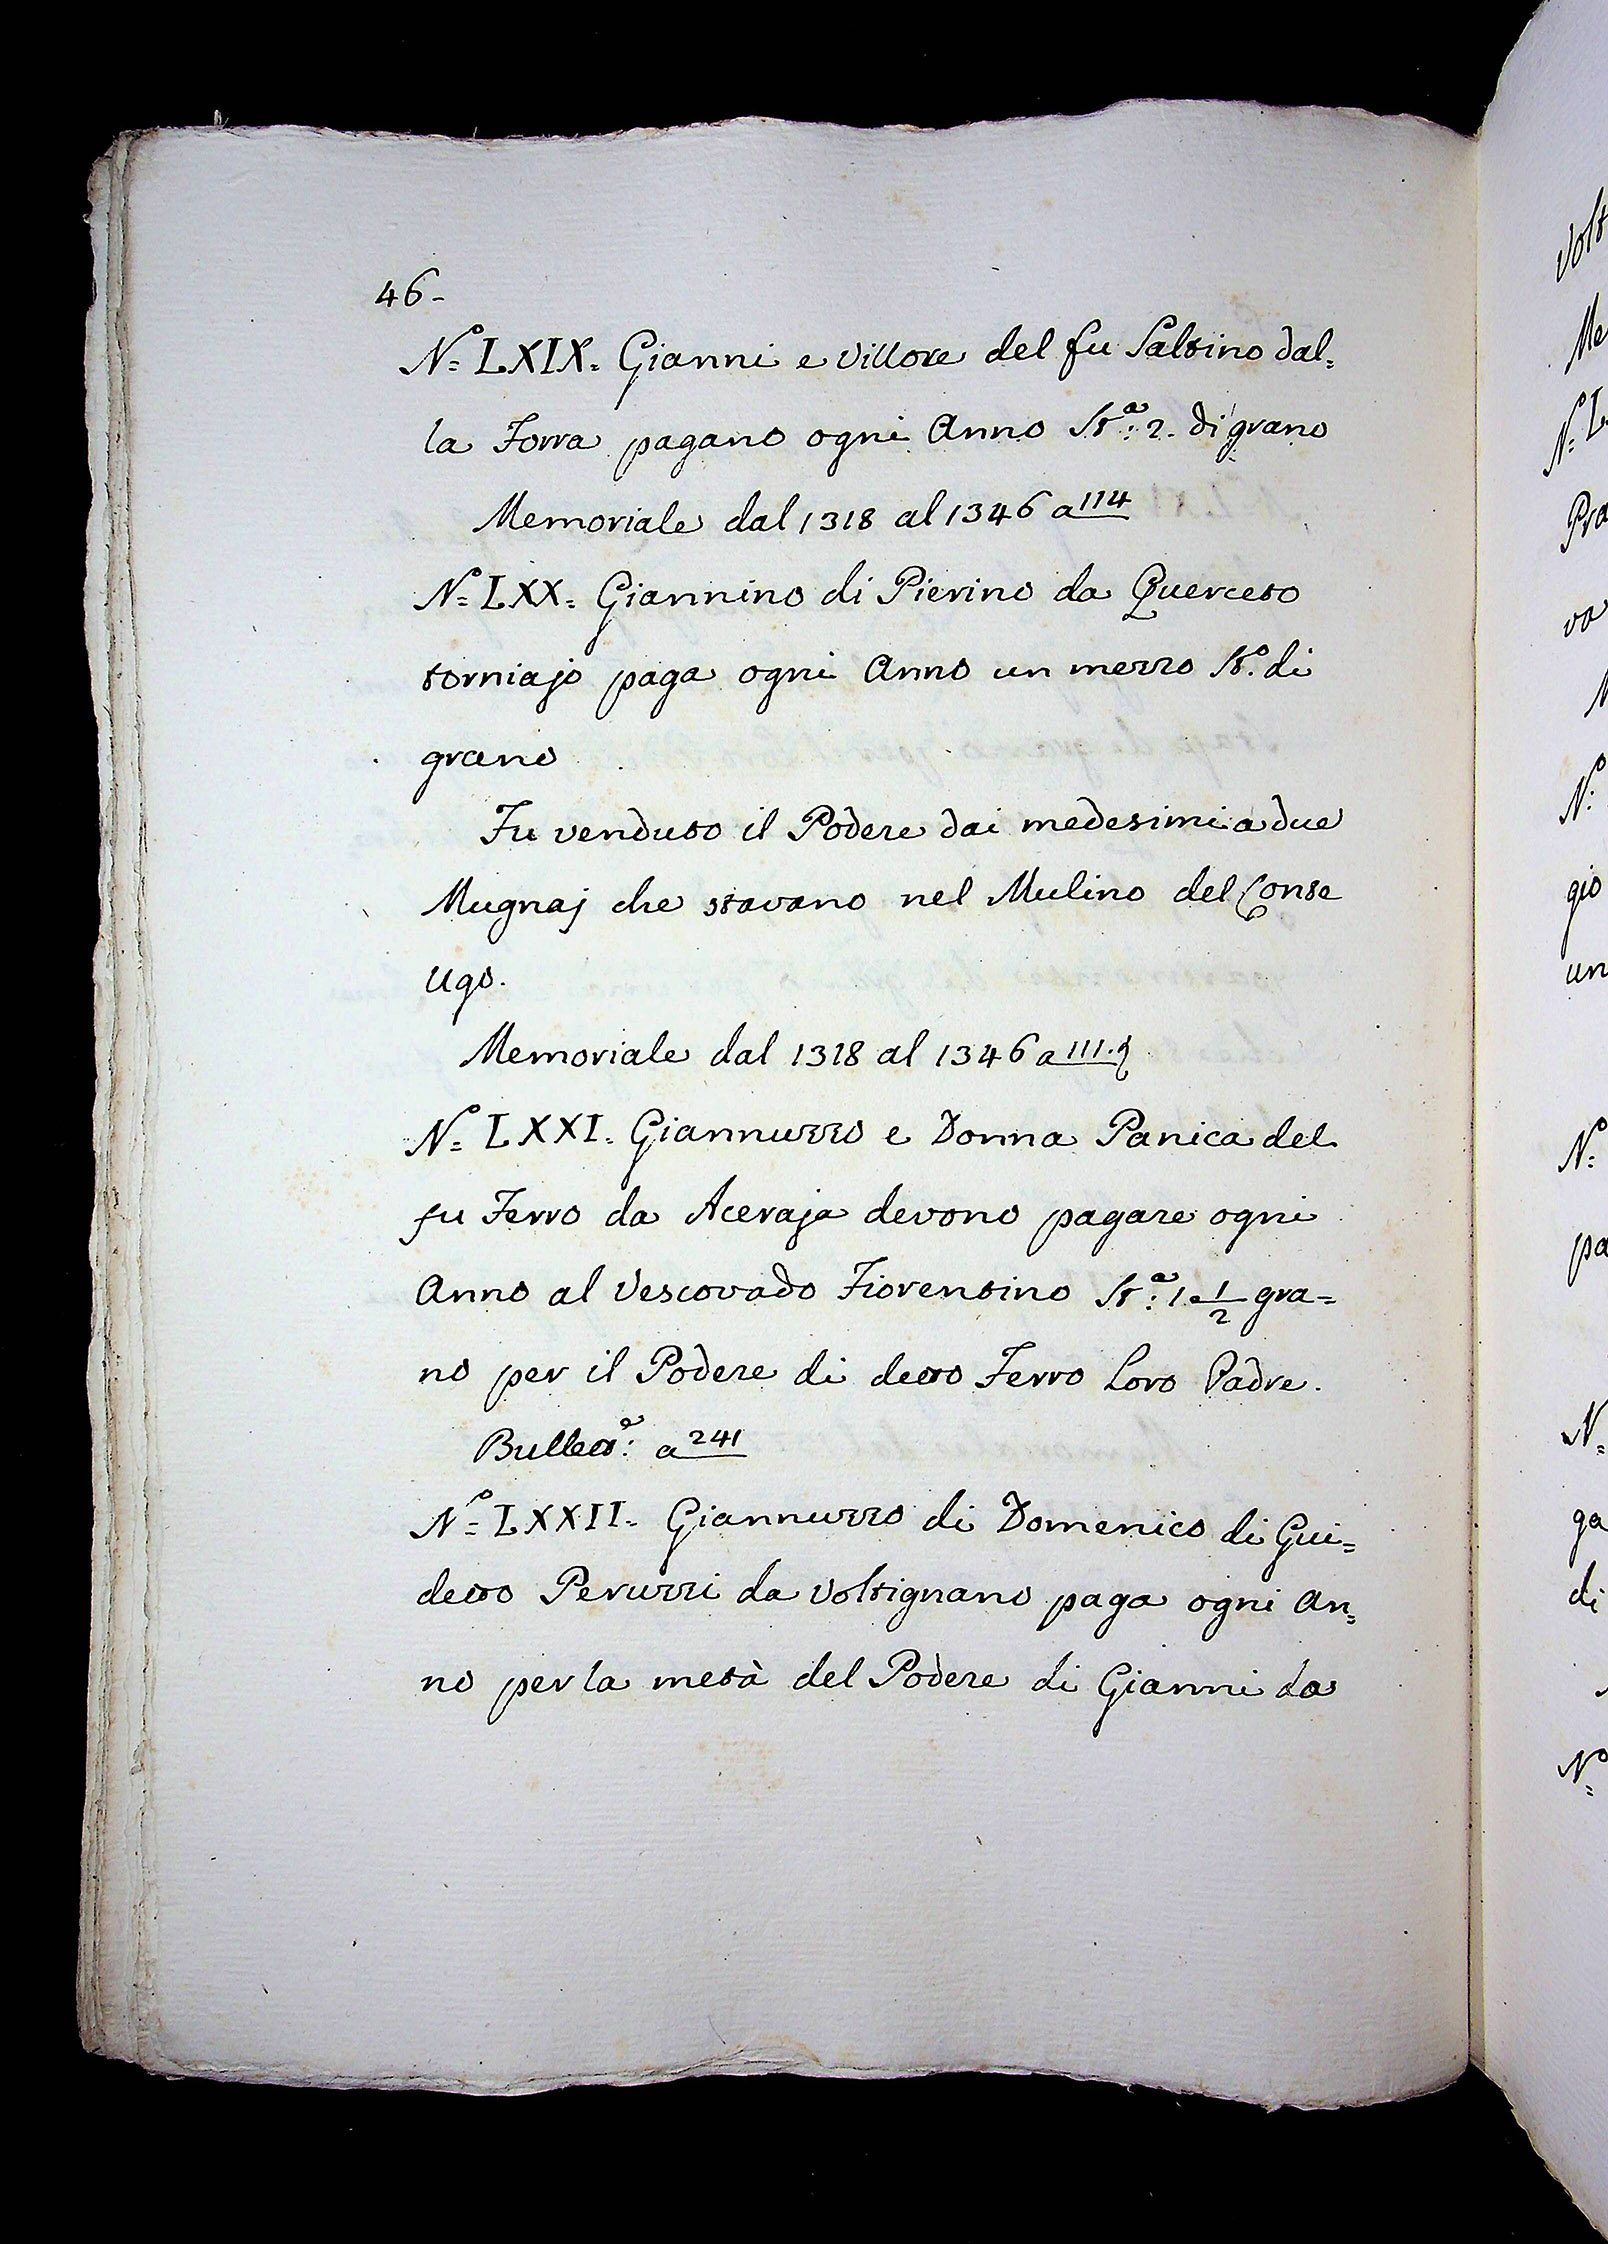 46-
N.º LXIX. Gianni e Vittore del fu Saltino dal=
la Torra pagano ogni Anno St.ª: 2. di grano
Memoriale dal 1318 al 1346 a 114
N.º LXX. Giannino di Pierino da Querceto
torniajo paga ogni Anno un mezzo St.º di
grano
Fu venduto il Podere dai medesimi a due
Mugnaj che stavano nel Mulino del Conte
Ugo.
Memoriale dal 1318 al 1346 a 111.
N.º LXXI. Giannuzzo e Donna Panica del
fu Ferro da Aceraja devono pagare ogni
Anno al Vescovado Fiorentino St.ª: 1 1/2 gra=
no per il Podere di detto Ferro Loro Padre.
Bullett.ª: a 241
N.º LXXII. Giannuzzo di Domenico di Gui=
detto Peruzzi da Voltignano paga ogni An=
no per la metà del Podere di Gianni da
Volt
Me
N.º L
Pra
va
N.º
gio
un
N.º
pa
N.
ga
di
N.º